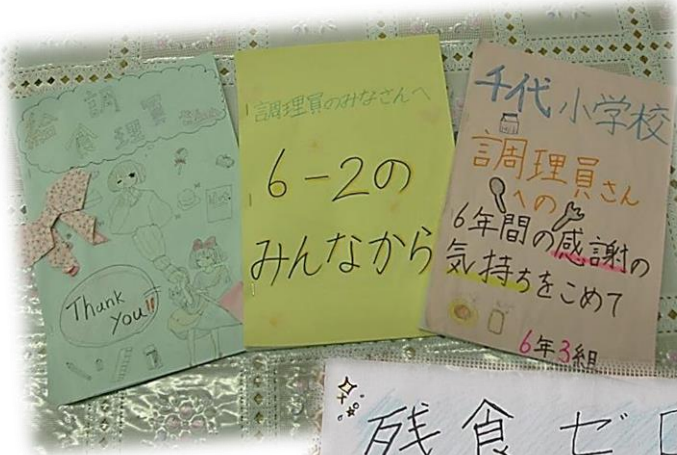 給食調理員さんへ
Thank
you!!
調理員のみなさんへ
6-2の
みんなから
千代小学校
調理員さん
への
6年間の感謝の
気持ちをこめて
6年3組
残食ゼロ